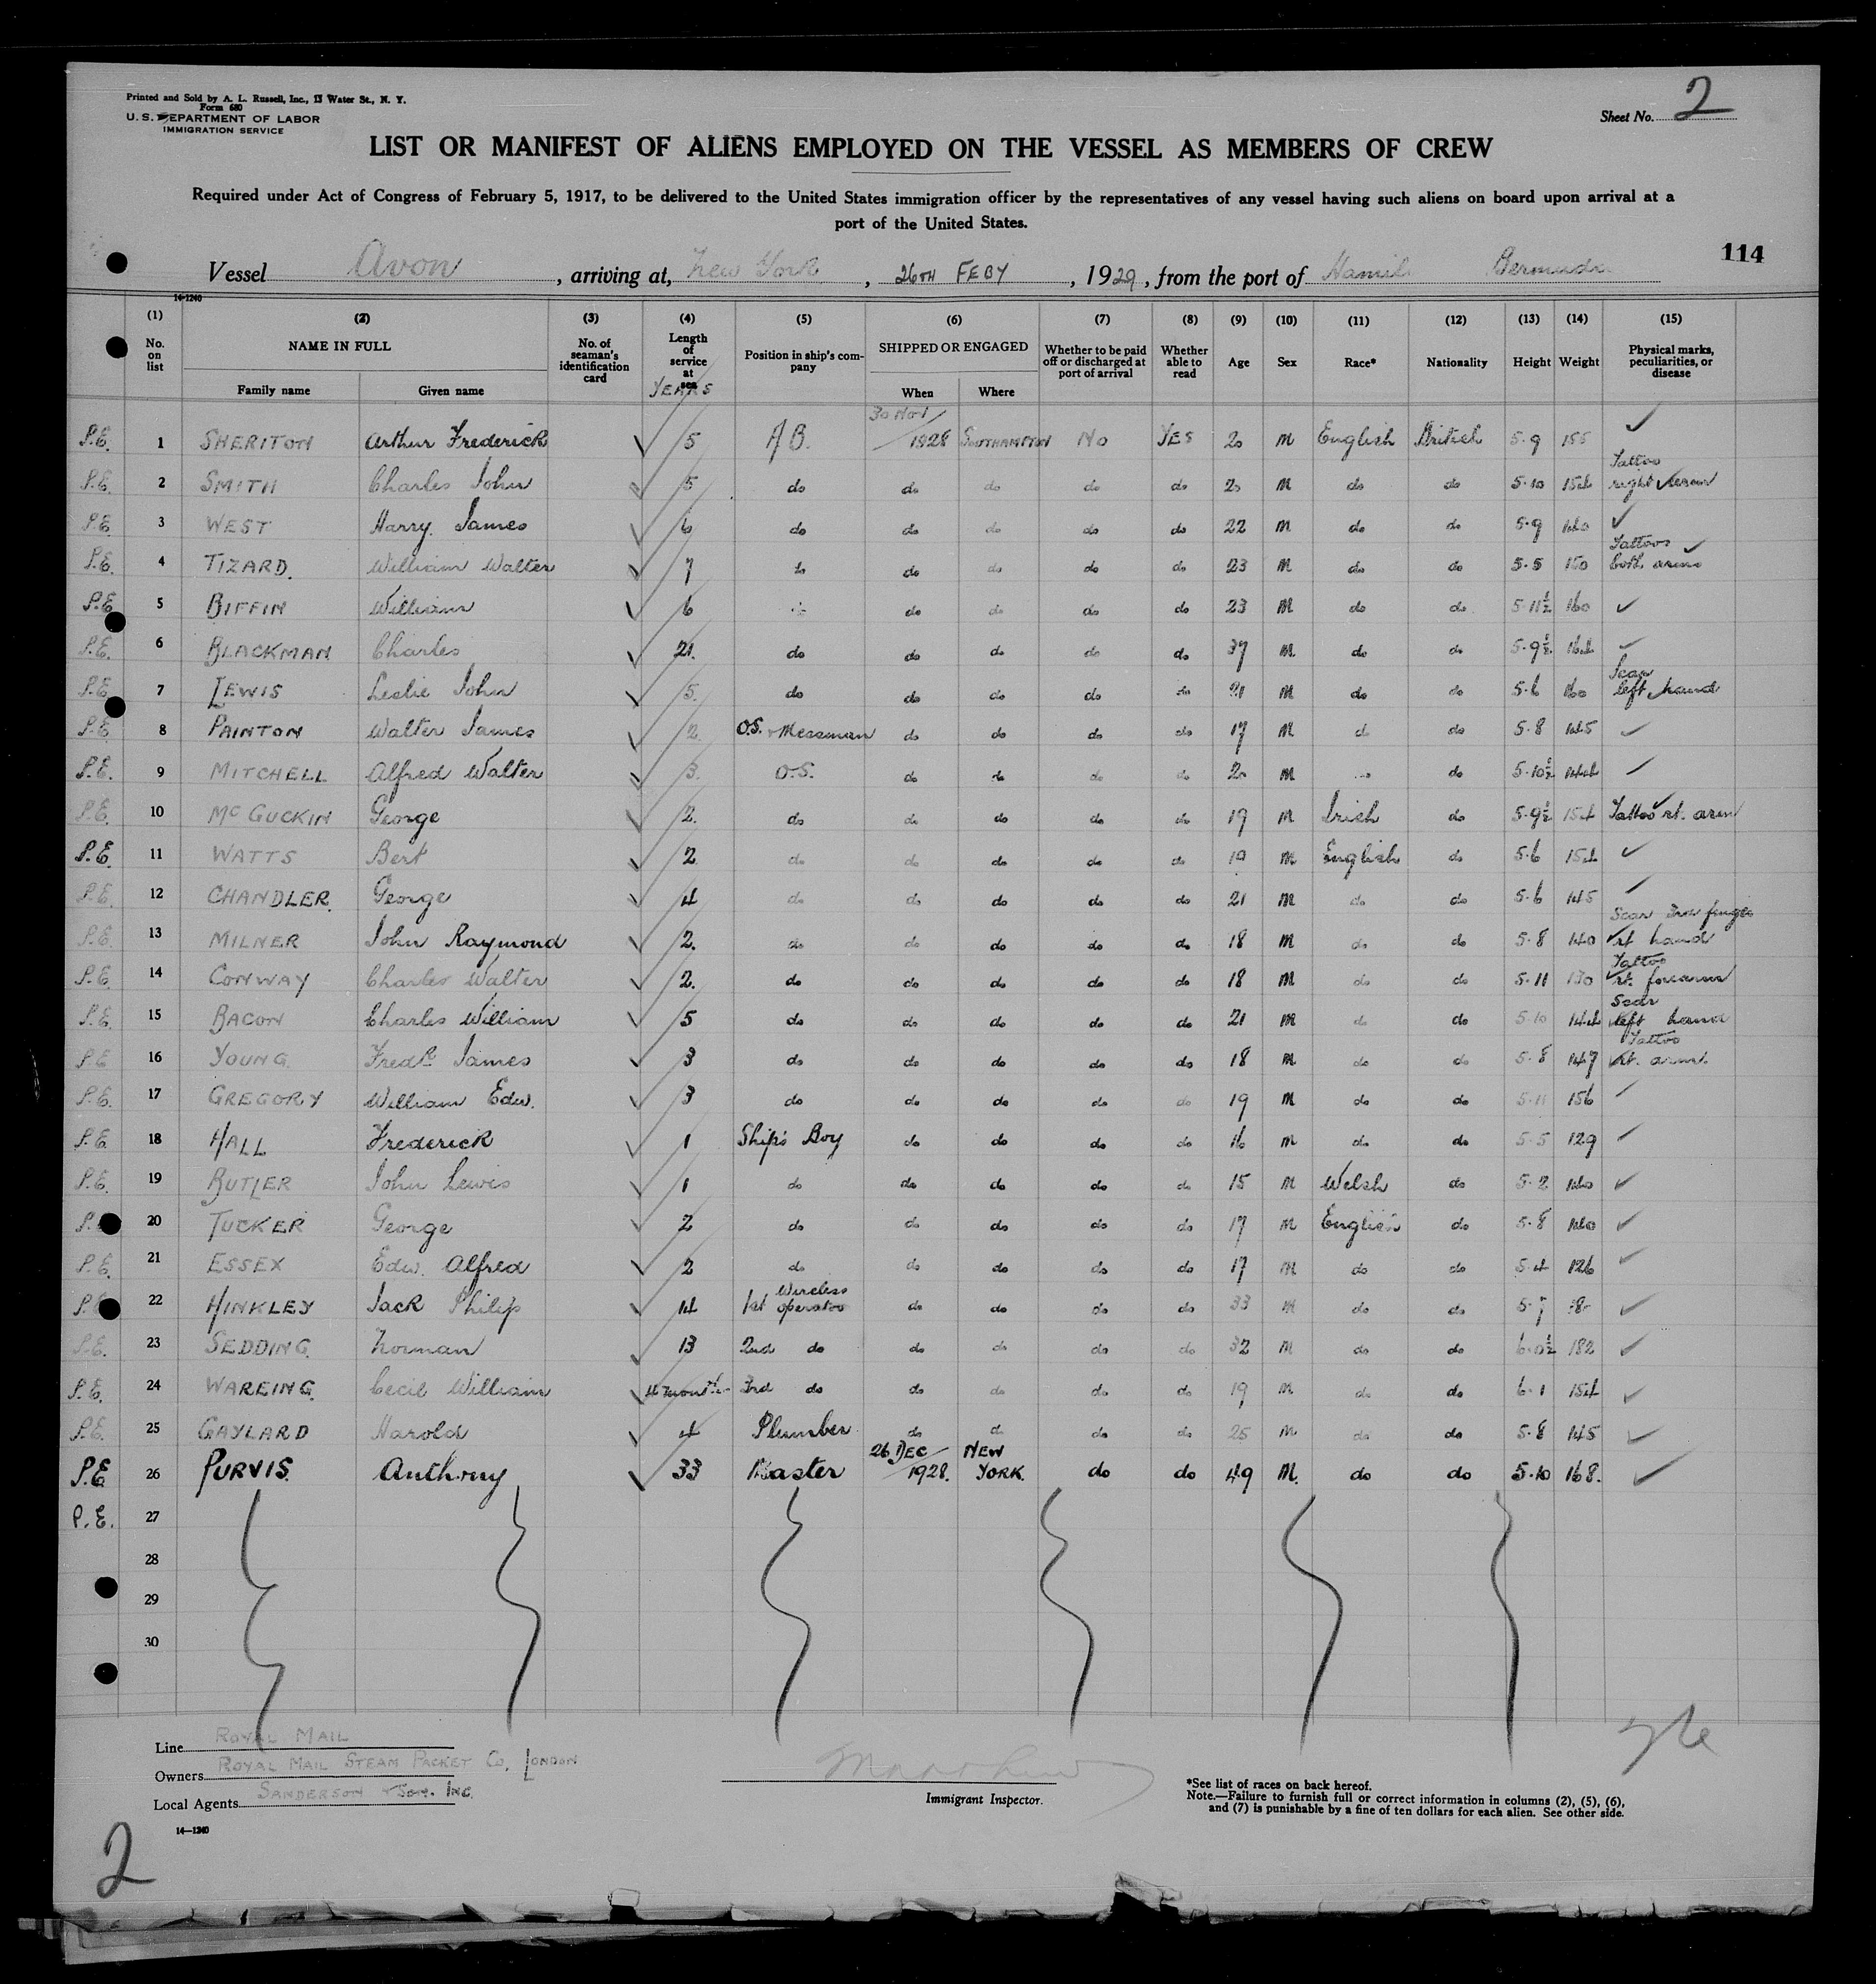 Printed and Sold by A. L. Russell, Inc., 13 Water St., N. Y.
Form 680
U. S. DEPARTMENT OF LABOR
IMMIGRATION SERVICE
Sheet No. 2
LIST OR MANIFEST OF ALIENS EMPLOYED ON THE VESSEL AS MEMBERS OF CREW
Required under Act of Congress of February 5, 1917, to be delivered to the United States immigration officer by the representatives of any vessel having such aliens on board upon arrival at a
port of the United States.
114
Vessel Avon , arriving at, New York , 26TH FEBY , 1929 , from the port of Hamil Bermuda
14-1240
(1) (2) (3) (4) (5) (6) (7) (8) (9) (10) (11) (12) (13) (14) (15)
No. on list NAME IN FULL Family name Given name No. of seaman's identification card Length of service at sea YEARS Position in ship's company SHIPPED OR ENGAGED When Where Whether to be paid off or discharged at port of arrival Whether able to read Age Sex Race* Nationality Height Weight Physical marks, peculiarities, or disease
P.E. 1 SHERITON Arthur Frederick 5 A.B. 30 Nov 1928 SOUTHAMPTON No YES 20 M English British 5.9 155
P.E. 2 SMITH Charles John 5 do do do do do 20 M do do 5.10 154 Tattoo right forearm
P.E. 3 WEST Harry James 6 do do do do do 22 M do do 5.9 140
P.E. 4 TIZARD. William Walter 7 do do do do do 23 M do do 5.5 150 Tattoos both arms
P.E. 5 BIFFIN William 6 do do do do 23 M do do 5.11½ 160
P.E. 6 BLACKMAN Charles 21. do do do do do 37 M. do do 5.9½ 164
P.E. 7 LEWIS Leslie John 5. do do do do do 21 M do do 5.6 160 Scar left hand
P.E. 8 PAINTON Walter James 2. O.S. + Messman do do do do 17 M do do 5.8 145
P.E. 9 MITCHELL Alfred Walter 3. O.S. do do do do 20 M do 5.10½ 144
P.E. 10 McGUCKIN George 2. do do do do do 19 M Irish do 5.9½ 154 Tattoo rt. arm
P.E. 11 WATTS Bert 2. do do do do do 19 M English do 5.6 154
P.E. 12 CHANDLER. George 4 do do do do do 21 M do do 5.6 145
P.E. 13 MILNER John Raymond 2. do do do do do 18 M do do 5.8 140 Scar 3rd finger rt hand
P.E. 14 CONWAY Charles Walter 2. do do do do do 18 M do do 5.11 130 Tattoo rt. forearm
P.E. 15 BACON Charles William 5 do do do do do 21 M do do 5.10 144 Scar left hand
P.E. 16 YOUNG Fredk James 3 do do do do do 18 M do do 5.8 147 Tattoo rt. arm.
P.E. 17 GREGORY William Edw. 3 do do do do do 19 M do do 5.11 156
P.E. 18 HALL Frederick 1 Ship's Boy do do do do 16 M do do 5.5 129
P.E. 19 BUTLER John Lewis 1 do do do do do 15 M Welsh do 5.2 140
P. 20 TUCKER George 2 do do do do do 17 M English do 5.8 140
P.E. 21 ESSEX Edw. Alfred 2 do do do do do 17 M do do 5.4 126
P. 22 HINKLEY Jack Philip 14 1st Wireless operator do do do do 33 M do do
P.E. 23 SEDDING. Norman 13 2nd do do do do do 32 M do do 6.0½ 182
P.E. 24 WAREING. Cecil William 4 months 3rd do do do do do 19 M do do 6.1 154
P.E. 25 GAYLARD Harold 4 Plumber do do do do 25 M do do 5.8 145
P.E 26 PURVIS. Anthony 33 Master 26 DEC 1928. NEW YORK. do do 49 M. do do 5.10 168.
P.E. 27
28
29
30
Line ROYAL MAIL
Owners ROYAL MAIL STEAM PACKET Co. LONDON
Local Agents SANDERSON & SON. INC.
14—1240
Immigrant Inspector.
*See list of races on back hereof.
Note.—Failure to furnish full or correct information in columns (2), (5), (6),
and (7) is punishable by a fine of ten dollars for each alien. See other side.
2